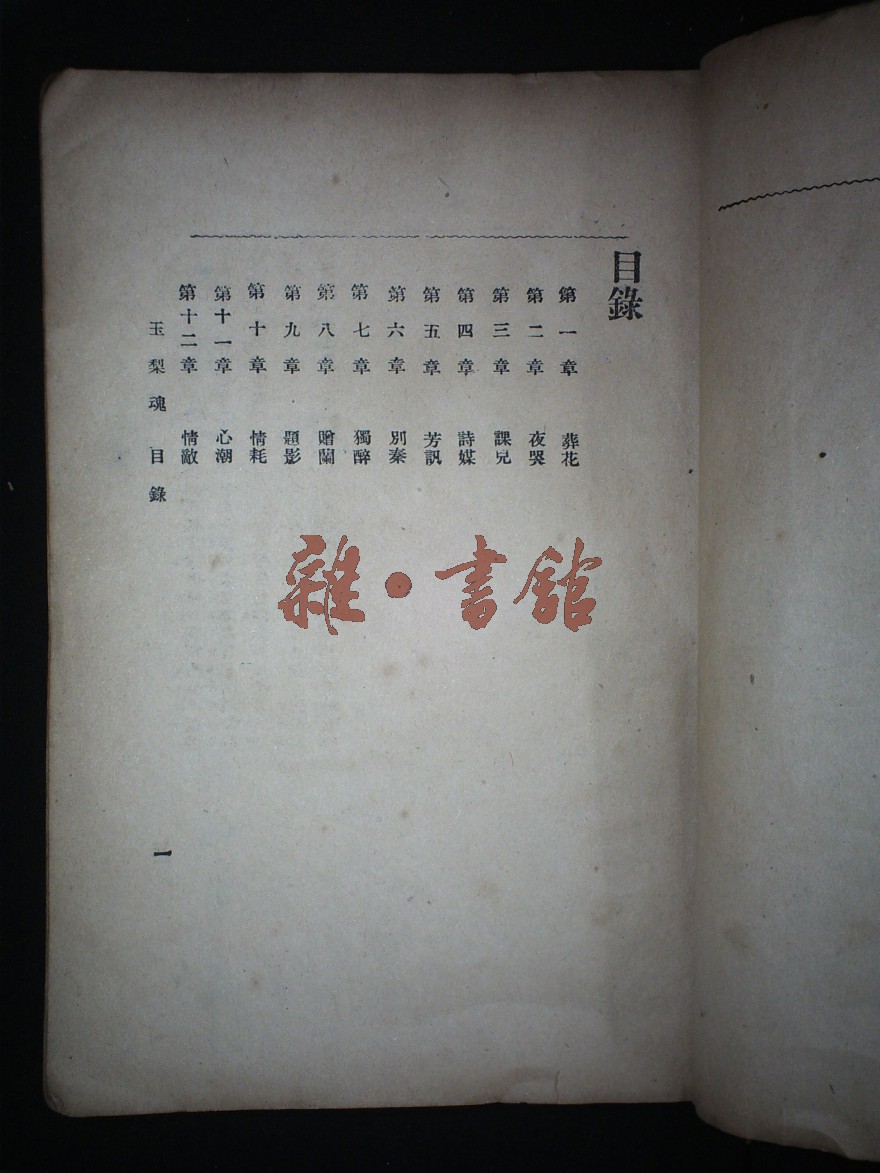 目錄
第一章 葬花
第二章 夜哭
第三章 課兒
第四章 詩媒
第五章 芳訊
第六章 別秦
第七章 獨醉
第八章 贈蘭
第九章 題影
第十章 情耗
第十一章 心潮
第十二章 情敵
玉梨魂 目錄
一
雜·書館